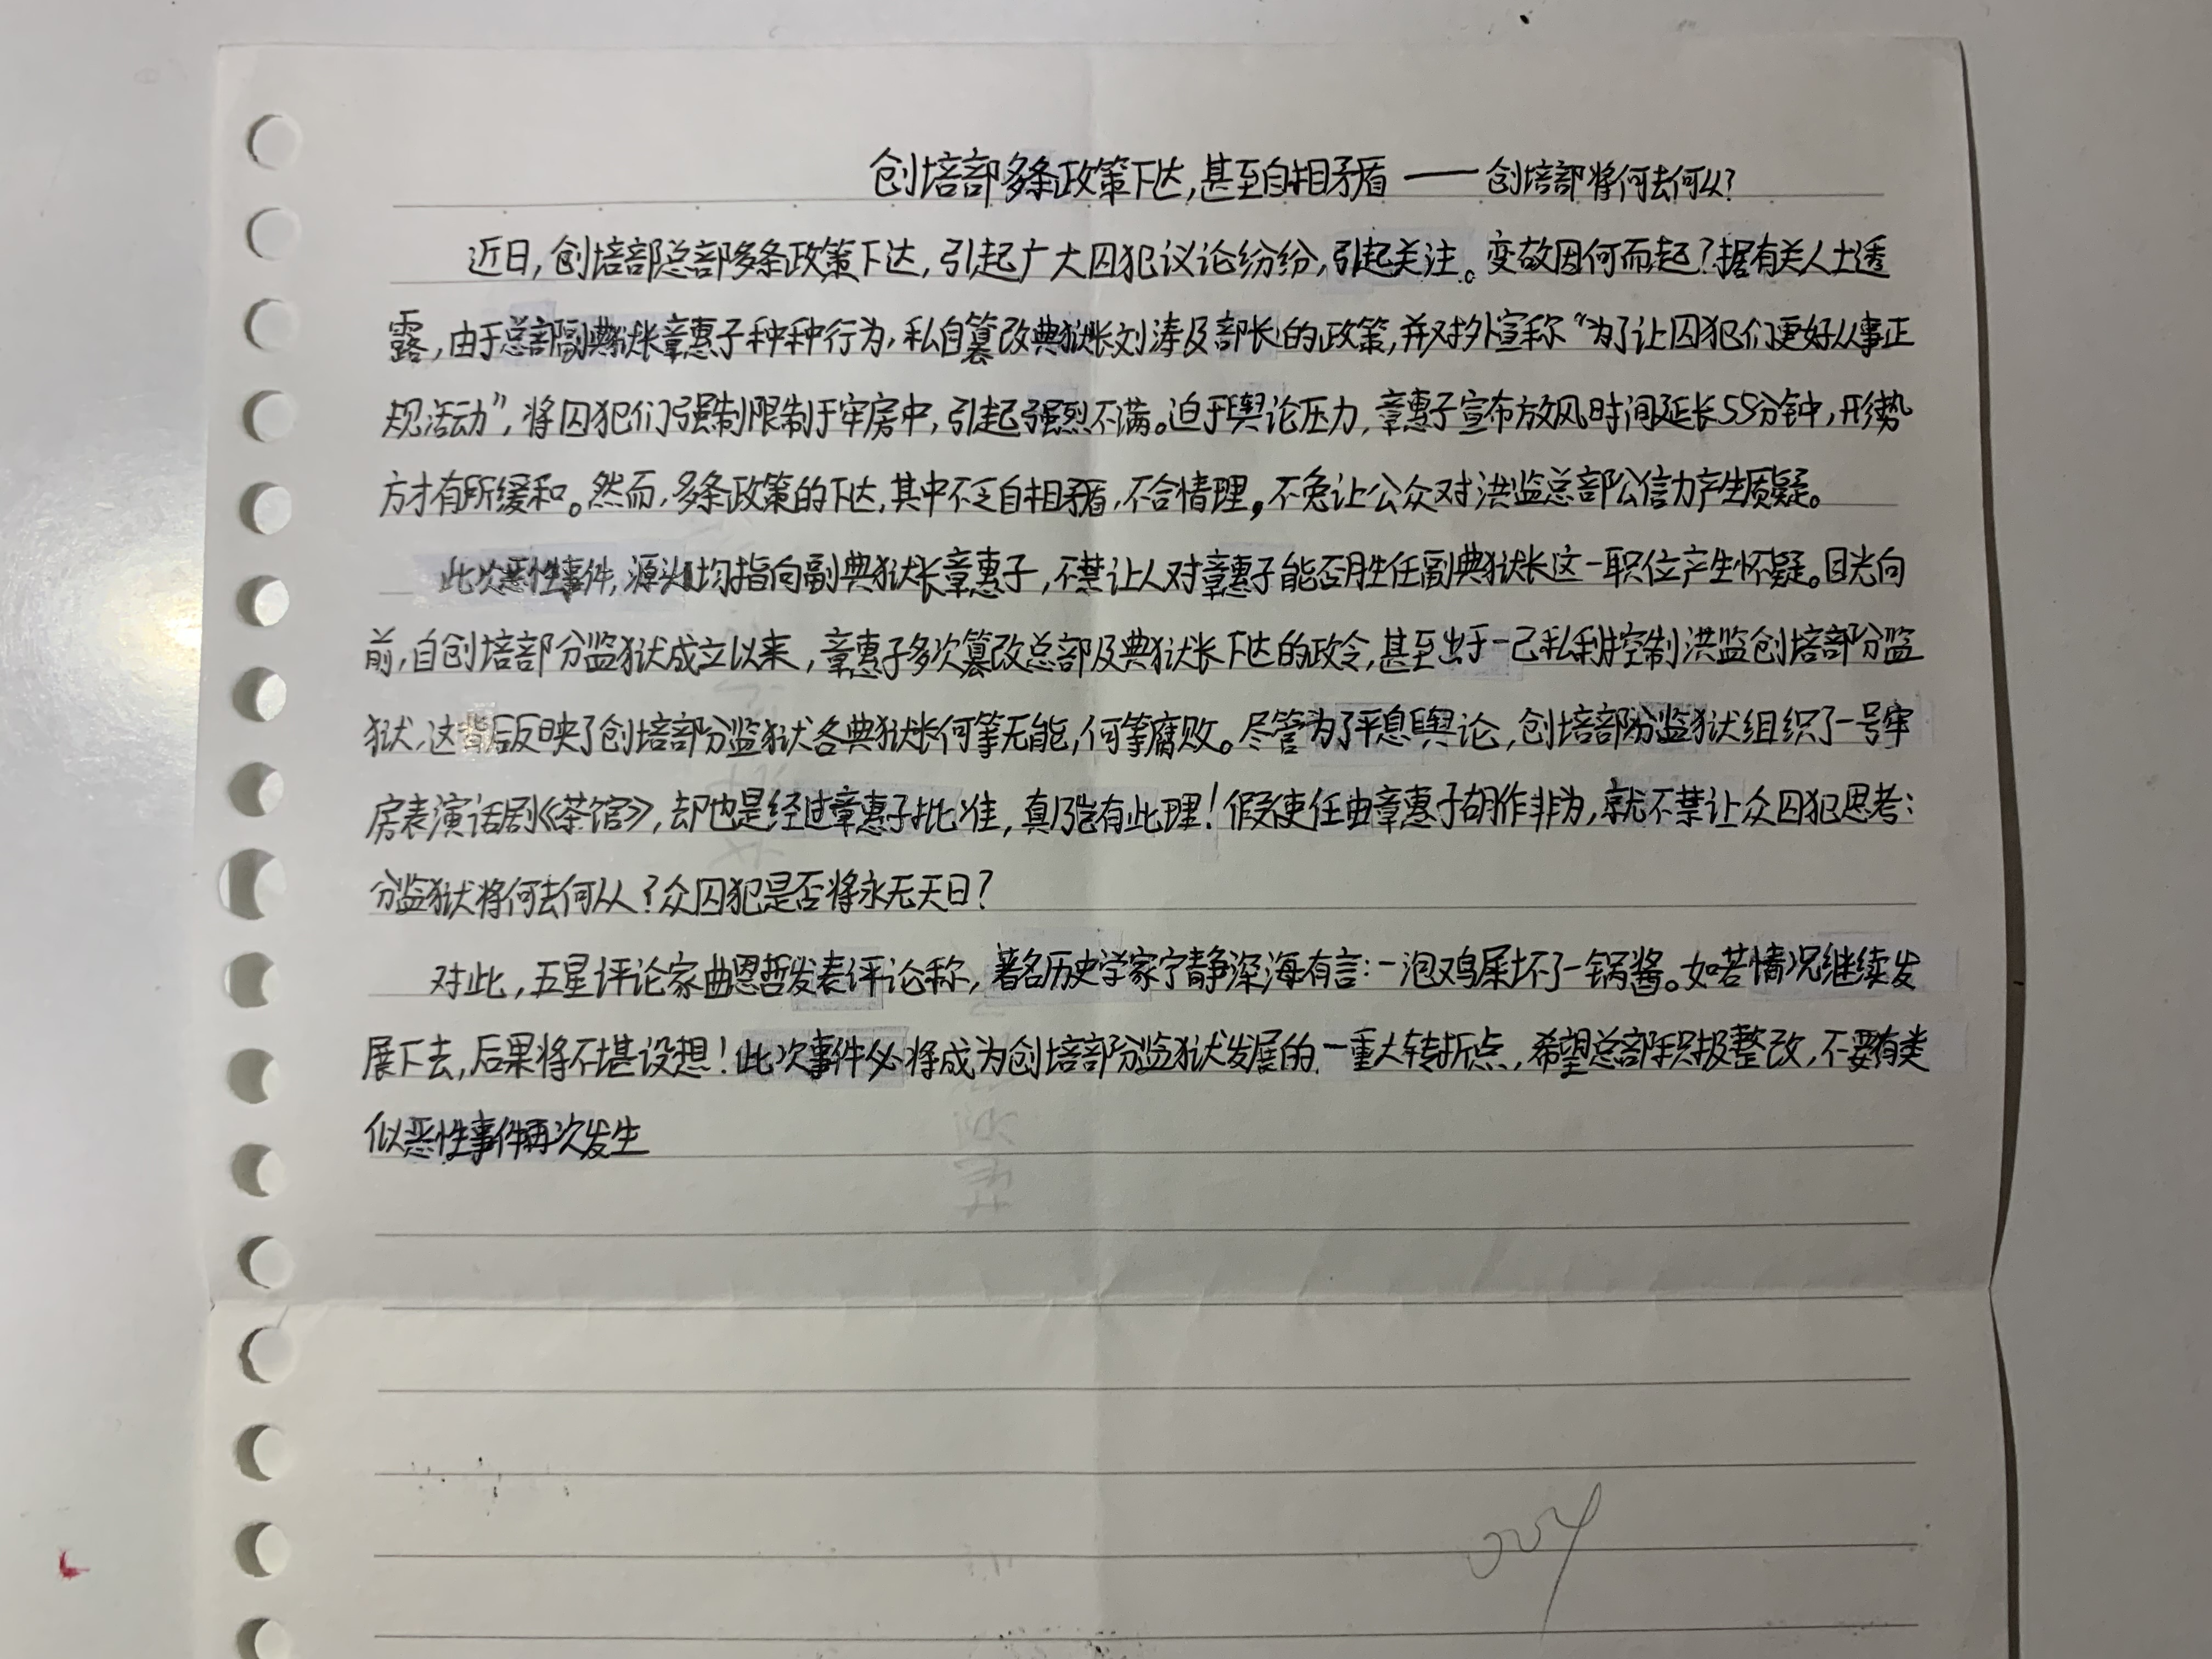 创培部多条政策下达,甚至自相矛盾 —— 创培部将何去何从?
近日,创培部总部多条政策下达,引起广大囚犯议论纷纷,引起关注。变故因何而起?据有关人士透
露,由于总部副典狱长章惠子种种行为,私自篡改典狱长刘涛及部长的政策,并对外宣称“为了让囚犯们更好从事正
规活动”,将囚犯们强制限制于牢房中,引起强烈不满。迫于舆论压力,章惠子宣布放风时间延长55分钟,形势
方才有所缓和。然而,多条政策的下达,其中不乏自相矛盾,不合情理,不免让公众对洪监总部公信力产生质疑。
此次恶性事件,源头均指向副典狱长章惠子,不禁让人对章惠子能否胜任副典狱长这一职位产生怀疑。目光向
前,自创培部分监狱成立以来,章惠子多次篡改总部及典狱长下达的政令,甚至出于一己私利控制洪监创培部分监
狱,这背后反映了创培部分监狱各典狱长何等无能,何等腐败。尽管为了平息舆论,创培部分监狱组织了一号牢
房表演话剧《茶馆》,却也是经过章惠子批准,真岂有此理!假使任由章惠子胡作非为,就不禁让众囚犯思考:
分监狱将何去何从?众囚犯是否将永无天日?
对此,五星评论家曲恩哲发表评论称,著名历史学家宁静深海有言:一泡鸡屎坏了一锅酱。如若情况继续发
展下去,后果将不堪设想!此次事件必将成为创培部分监狱发展的一重大转折点,希望总部积极整改,不要有类
似恶性事件再次发生